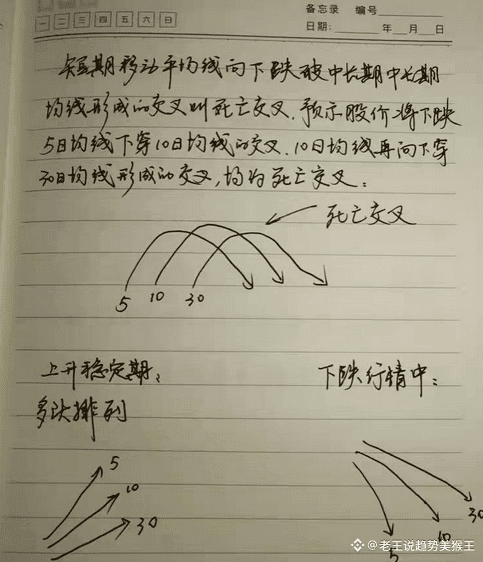 备忘录 编号
一 二 三 四 五 六 日
日期: 年 月 日
短期移动平均线向下跌破中长期中长期
均线形成的交叉叫死亡交叉.预示股价将下跌
5日均线下穿10日均线的交叉.10日均线再向下穿
30日均线形成的交叉,均为死亡交叉:
死亡交叉
5 10 30
上升稳定期、
下跌行情中:
多头排列
5
10
30
30
10
5
@老王说趋势美猴王